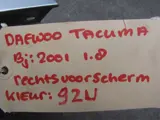 DAEWOO TACUMA
Bj: 2001 1.8
rechtsvoorscherm
Kleur: 92U